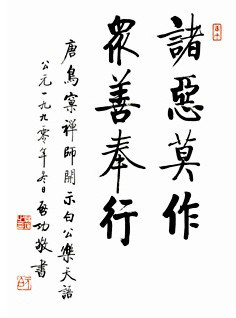 諸惡莫作
眾善奉行
唐鳥窠禪師開示白公樂天語
公元一九九零年冬日啓功敬書